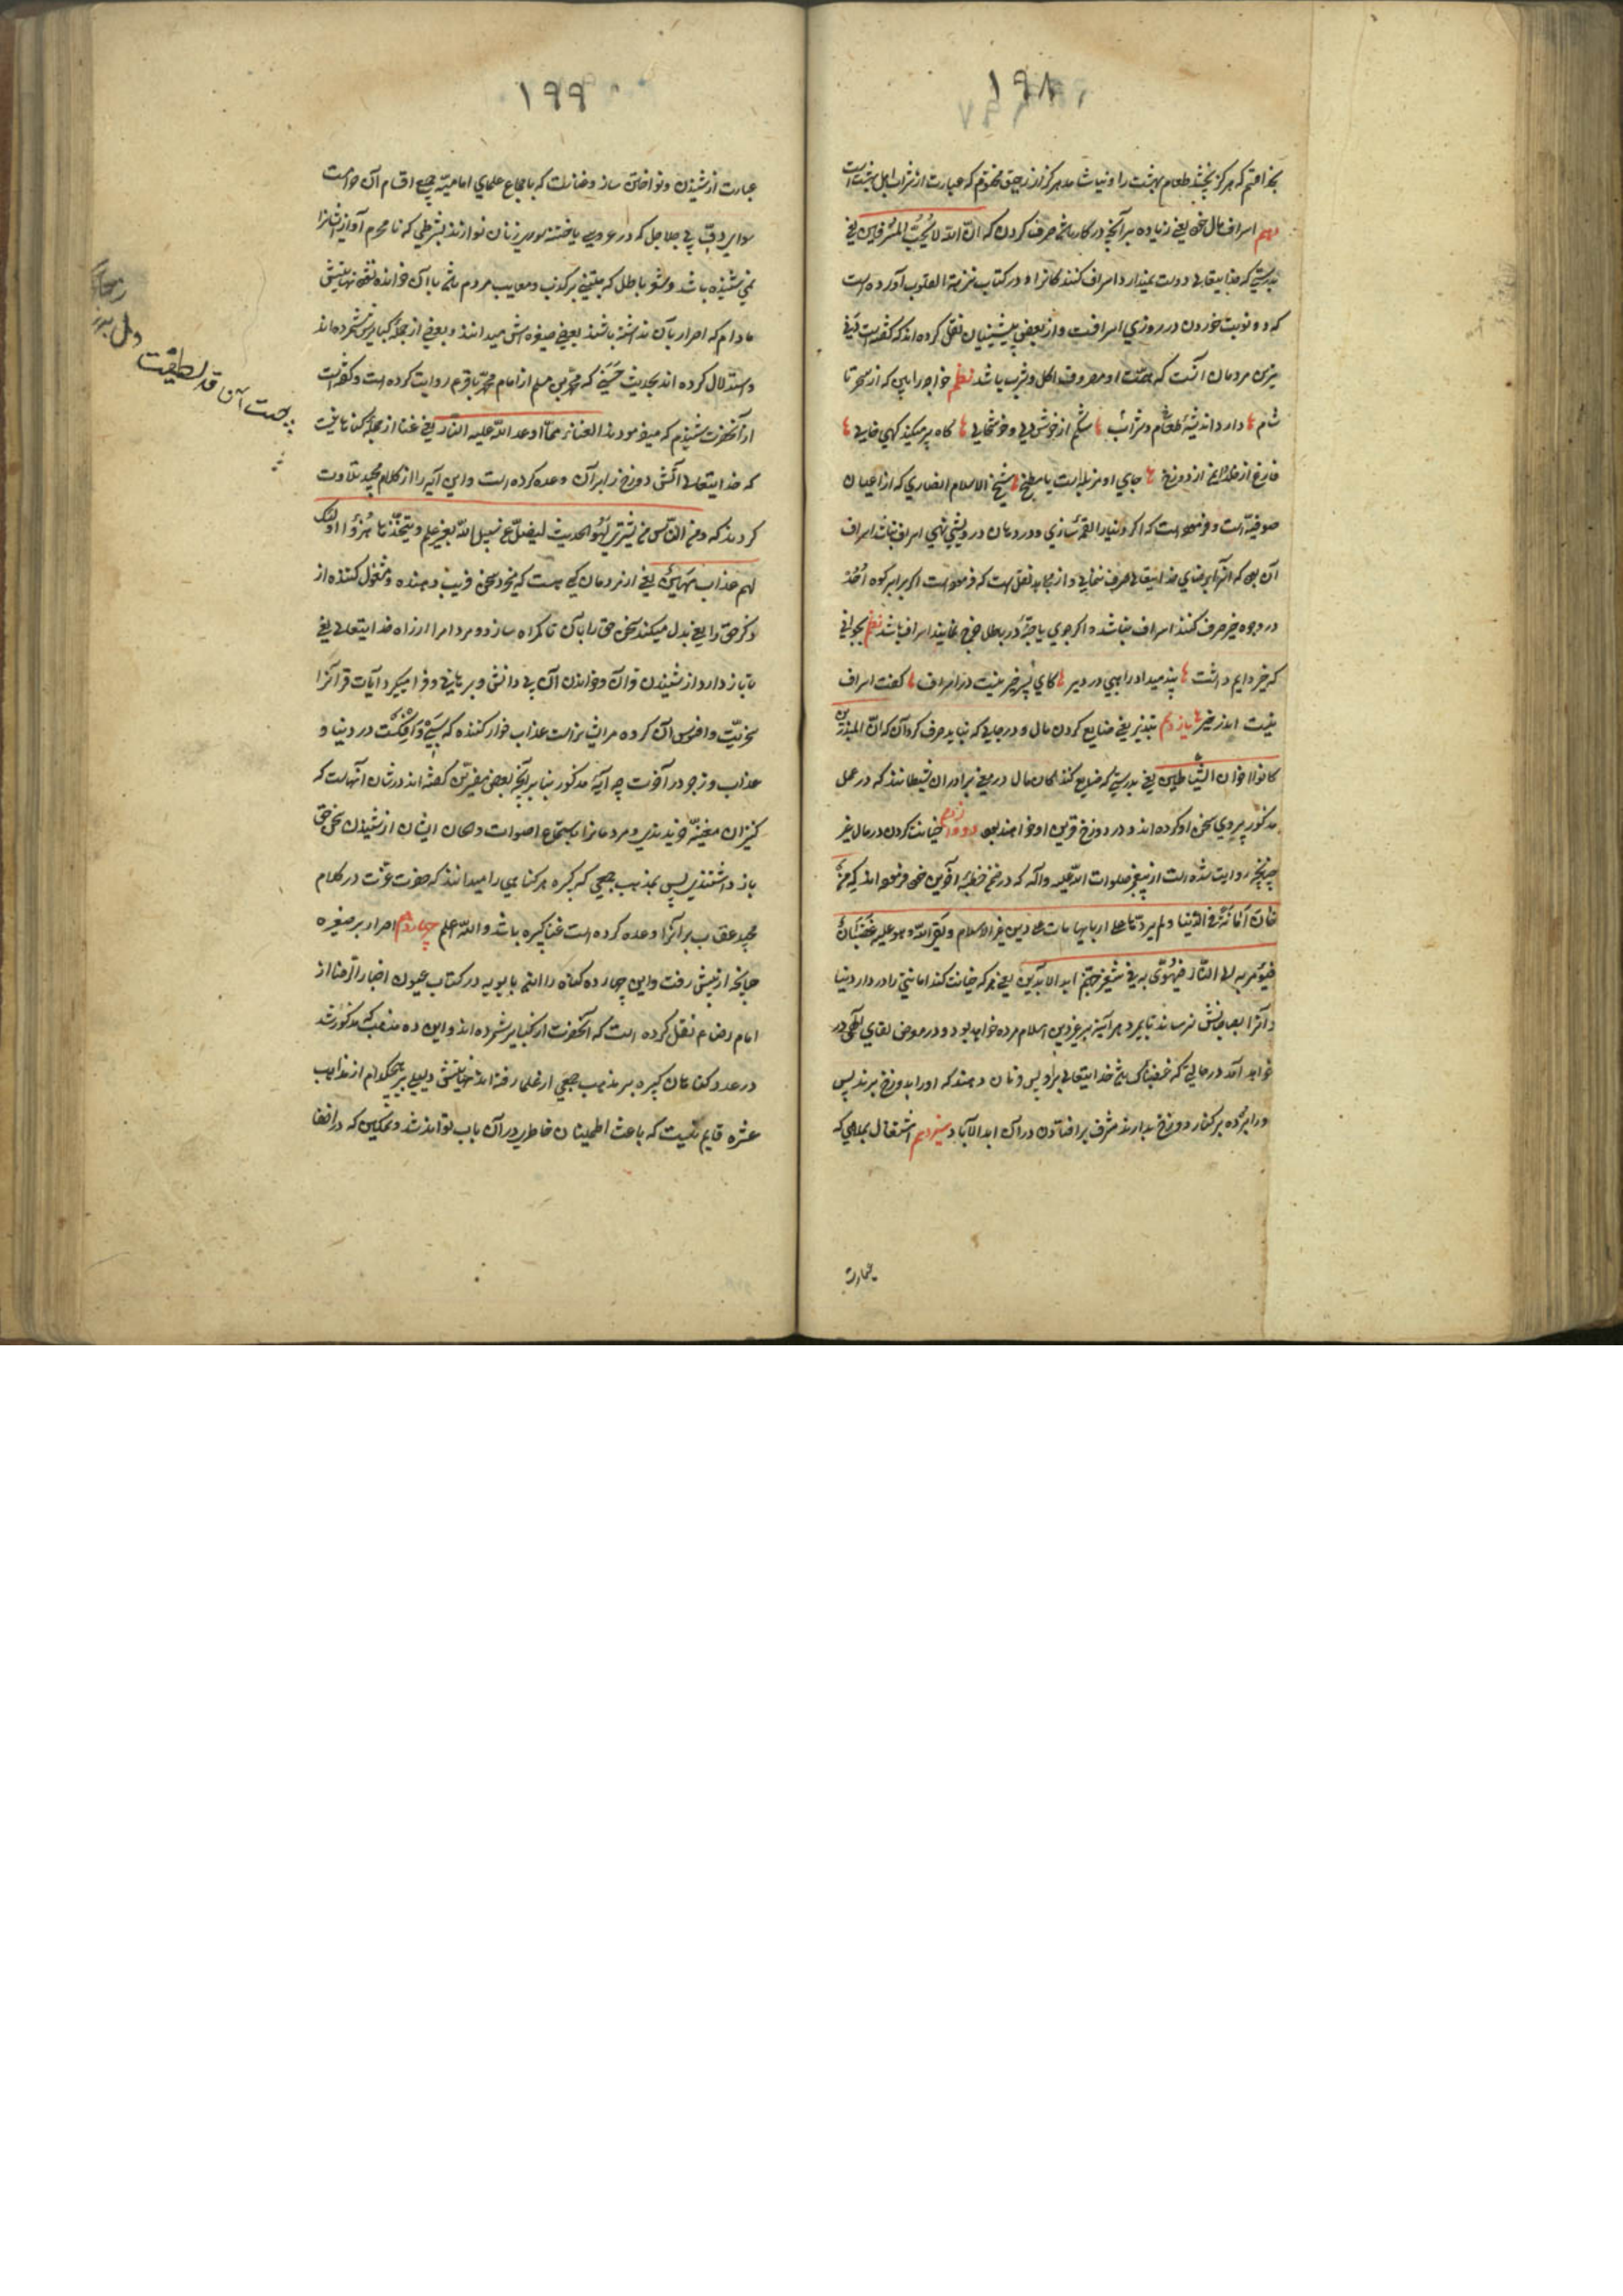 ١٩٨
بخدا قسم که هرگز نچشد طعام بهشت را و نیاشامد هرگز از رحیق مختوم که عبارت از شراب اهل بهشت است
دهم اسراف مال یعنی زیاده بر آنچه در کار باشد صرف کردن که انّ الله لا یُحبّ المُسرفین یعنی
بدرستی که خدایتعالی دوست نمیدارد اسراف کنندکانرا و در کتاب مزینة القلوب آورده است
که دو نوبت خوردن در روزی اسرافست و از بعضی پیشینیان نقل کرده اند که گفته است
ترین مردمان آنست که همّت او مصروف اکل و شرب باشد نظم خواجه را بین که از سحر تا
شام دارد اندیشهٔ طعام و شراب شکم از خوش دلی و خوشحالی گاه پر میکند کهی خالی
فارغ از خلد و ایمن از دوزخ جای او مزبلست یا مطبخ شیخ الاسلام انصاری که از اعیان
صوفیّه است و فرموده است که اگر دنیا را لقمه سازی و در دهان درویشی نهی اسراف نباشد اسراف
آن بود که آنرا برضای خدایتعالی صرف ننمایی و از مجاهد نقل است که فرموده است اگر برابر کوه اُحُد
در وجوه خیر صرف کنند اسراف نباشد و اگر جوی یا حبّهٔ در باطل خرج نمایند اسراف باشد نظم
که خرد ایم داشت پند میداد راهبی در دیر کای پسر خیر نیست در اسراف گفت اسراف
نیست اندر خیر یازدهم تبذیر یعنی ضایع کردن مال و در جایی که نباید صرف کرد آن که انّ المبذرین
کانوا اخوان الشّیاطین یعنی بدرستی که ضایع کنندکان مال در معنی برادران شیطانند که در عمل
مذکور پیروی سخن او کرده اند و در دوزخ قرین او خواهند بود دوازدهم خیانت کردن در مال غیر
چنانچه روایت شده است از پیغمبر صلوات الله علیه و آله که در ضمن خطبهٔ آخرین خود فرموده اند که من
خانَ اَمانَةً فی الدّنیا و لم یردّها علی اربابها مات علی دین غیر الاسلام و یلقی الله و هو علیه غَضبانُ
فیؤمر به الی النّار فیهوی به فی شفیر جهنّم ابد الآبدین یعنی هر که خیانت کند امانتی را در دار دنیا
و آنرا بصاحبش نرساند تا بمیرد هر آینه بر غیر دین اسلام مرده خواهد بود و در موضع لقای الهی در
خواهد آمد در حالتی که غضبناک باشد خدایتعالی بر او پس فرمان دهند که او را بدوزخ برند پس
و را برده بر کنار دوزخ بدارند مشرف بر افتادن در آن ابد الآباد سیزدهم اشتغال بملاهی که
عبارت
١٩٩
عبارت از شنیدن و نواختن ساز و غناست که باجماع علمای امامیّه جمیع اقسام آن حرامست
سوای دفّ بی جلاجل که در عروسی یا ختنه سوری زنان نوازند بشرطی که نامحرم آواز ایشانرا
نمی شنیده باشد و شعر باطل که مبتنی بر کذب و معایب مردم باشد با آن خوانده نشود نهایتش
مادام که اصرار بآن نداشته باشند بعضی صغیره اش میدانند و بعضی از جمله کبایرش شمرده اند
و استدلال کرده اند بحدیث حَسَنی که محمّد بن مسلم از امام محمّد باقر م روایت کرده است و گفته است
از آنحضرت شنیدم که میفرمودند الغناء ممّا اوعد الله علیه النّار یعنی غنا از جمله گناهانیست
که خدایتعالی آتش دوزخ را بر آن وعده کرده است و این آیه را از کلام مجید تلاوت
کردند که و من النّاس من یشتری لهو الحدیث لیضلّ عن سبیل الله بغیر علم و یتخذها هُزُواً اولئک
لهم عذاب مهینٌ یعنی از مردمان کسی هست که میخرد سخن فریب دهنده و مشغول کننده از
ذکر حق را یعنی بدل میکند سخن حق را بآن تا گمراه سازد مردم را از راه خدایتعالی یعنی
تا باز دارد از شنیدن قرآن و خواندن آن بی دانش و برهانی و فرا میگیرد آیات قرآنرا
سخریّت و افسوس آن گروه مر ایشانراست عذاب خوار کننده که در دنیا و
عذاب و زجر در آخرت چه آیهٔ مذکور بنا بر آنچه بعضی مفسّرین گفته اند در شان آنهاست که
کنیزان مغنیّه خریدندی و مردمانرا باستماع اصوات و الحان ایشان از شنیدن سخن حق
باز داشتندی پس بمذهب جمعی که کبیره هر گناهی را میدانند که حضرت عزّت در کلام
مجید عقاب بر آنرا وعده کرده است غنا کبیره باشد و الله اعلم چهاردهم اصرار بر صغیره
چنانچه از پیش رفت و این چهارده گناه را ابن بابویه در کتاب عیون اخبار الرّضا از
امام رضا م نقل کرده است که آنحضرت از کبایر شمرده اند و این ده مذهب که مذکور شد
در عدد گناهان کبیره بر مذهب جمعی از علما رفته اند نهایتش دلیلی بر هیچکدام از مذاهب
عشره قایم نیست که باعث اطمینان خاطر در آن باب تواند شد و ممکن که در اخفا